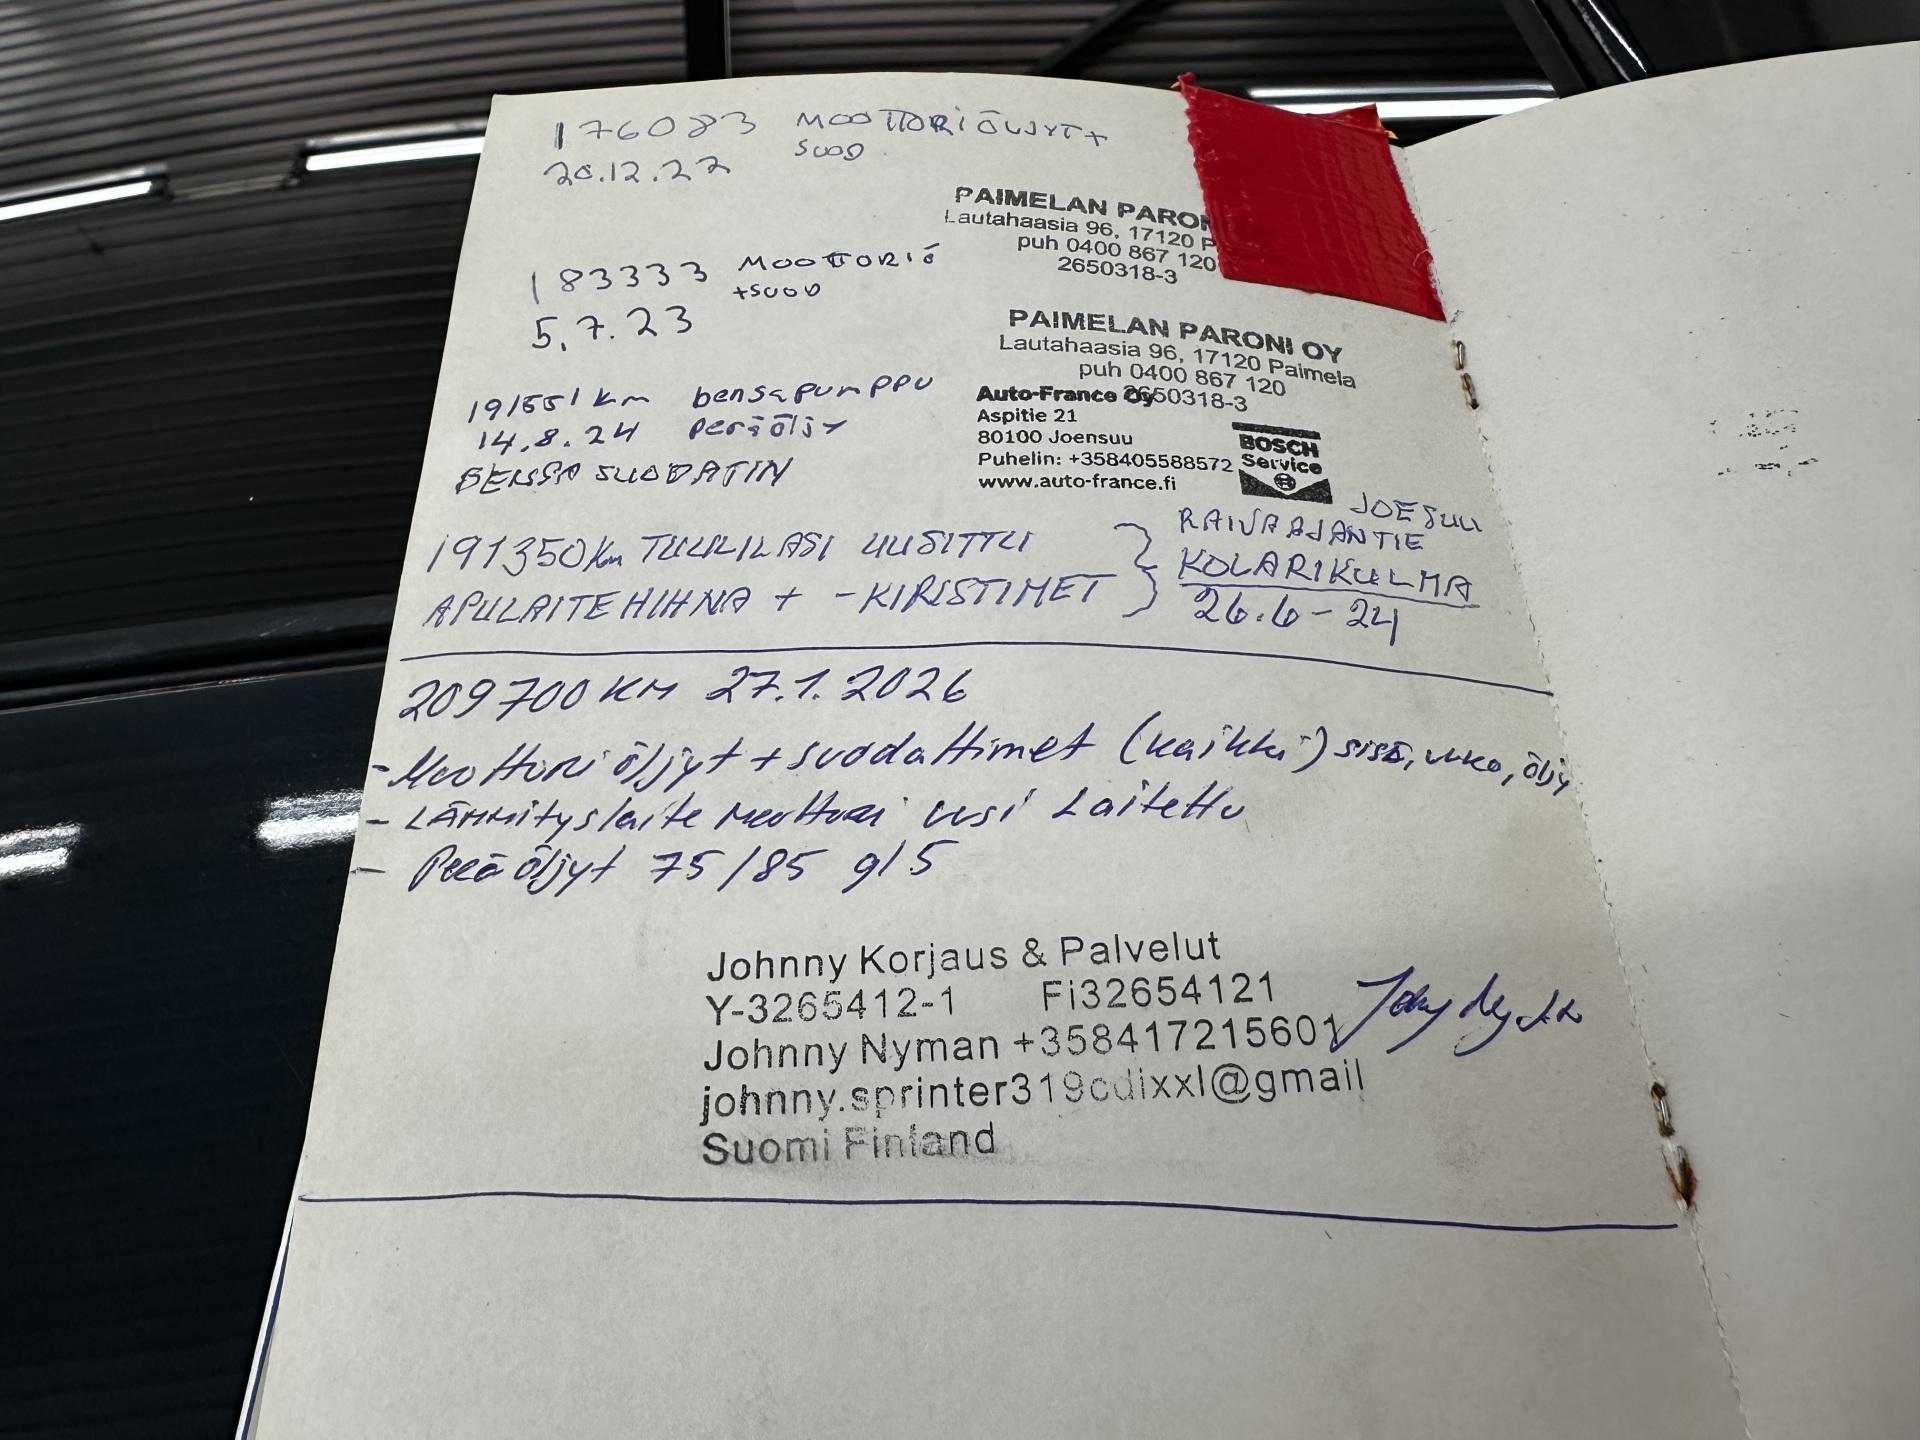 176083 MOOTTORIÖLJYT +
20.12.22 SUOD
PAIMELAN PARON
Lautahaasia 96, 17120 P
puh 0400 867 120
2650318-3
183333 MOOTTORIÖ
+SUOD
5.7.23
PAIMELAN PARONI OY
Lautahaasia 96, 17120 Paimela
puh 0400 867 120
2650318-3
191551 km bensapumppu
14.8.24 peräöljy
BENSA SUODATIN
Auto-France Oy
Aspitie 21
80100 Joensuu
Puhelin: +358405588572
www.auto-france.fi
BOSCH
Service
191350km TUULILASI UUSITTU
APULAITEHIHNA + -KIRISTIMET
JOESUU
RAIVAAJANTIE
KOLARIKULMA
26.6-24
209700 KM 27.1.2026
- Moottori öljyt + suodattimet (kaikki) sisä, ulko, öljy
- LÄMMityslaite moottori uusi Laitettu
- Perä öljyt 75/85 gl5
Johnny Korjaus & Palvelut
Y-3265412-1 Fi32654121
Johnny Nyman +358417215601
johnny.sprinter319cdixxl@gmail
Suomi Finland